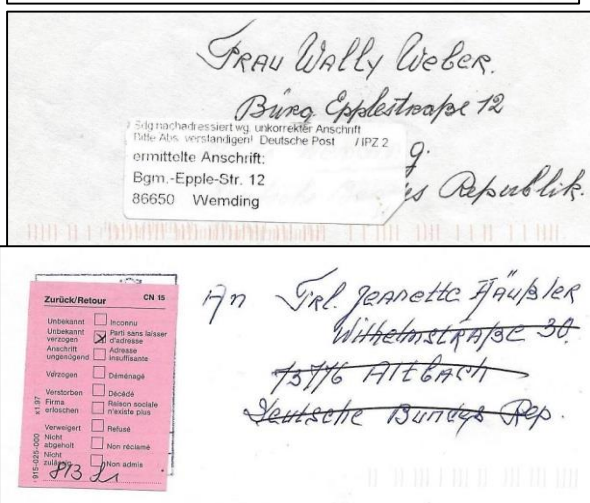 Frau Wally Weber.
Bürg. Epplestraße 12
Sdg nachadressiert wg. unkorrekter Anschrift
Bitte Abs. verständigen! Deutsche Post / IPZ 2
ermittelte Anschrift:
Bgm.-Epple-Str. 12
86650 Wemding
g.
Republik.
Zurück/Retour CN 15
Unbekannt Inconnu
Unbekannt verzogen Parti sans laisser d'adresse
Anschrift ungenügend Adresse insuffisante
Verzogen Déménagé
Verstorben Décédé
Firma erloschen Raison sociale n'existe plus
Verweigert Refusé
Nicht abgeholt Non réclamé
Nicht zulässig Non admis
915-025-000 x1.97
An Frl. Jeanette Häußler
Wilhelmstraße 30.
73776 Altbach
Deutsche Bundes Rep.